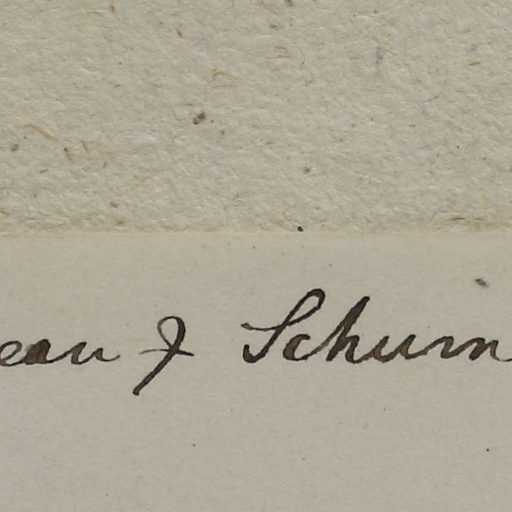 eau & Schum